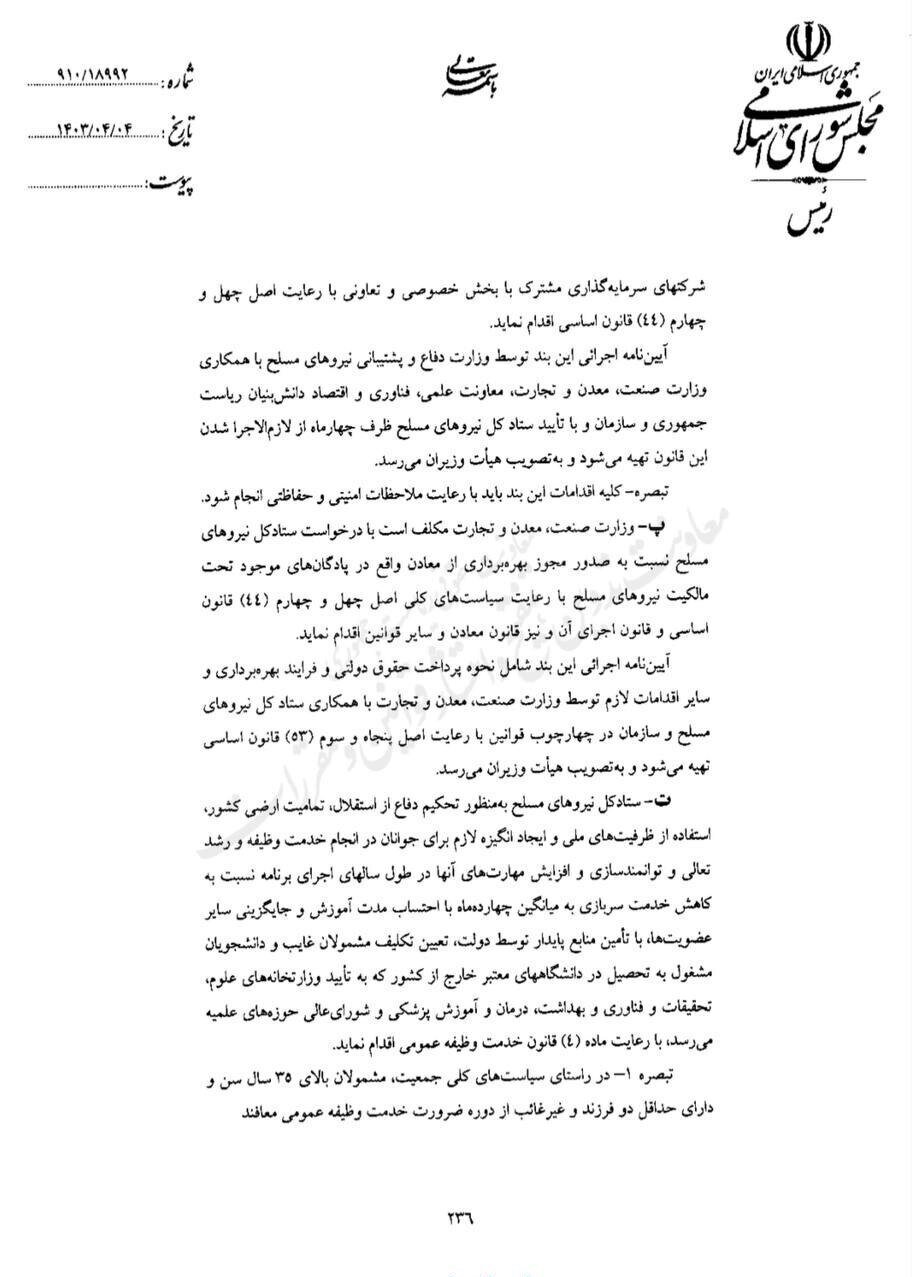 جمهوری اسلامی ایران
مجلس شورای اسلامی
رئیس
باسمه تعالی
شماره: ۹۱۰/۱۸۹۹۲
تاریخ: ۱۴۰۳/۰۴/۰۴
پیوست:
شرکتهای سرمایه‌گذاری مشترک با بخش خصوصی و تعاونی با رعایت اصل چهل و
چهارم (٤٤) قانون اساسی اقدام نماید.
آیین‌نامه اجرائی این بند توسط وزارت دفاع و پشتیبانی نیروهای مسلح با همکاری
وزارت صنعت، معدن و تجارت، معاونت علمی، فناوری و اقتصاد دانش‌بنیان ریاست
جمهوری و سازمان و با تأیید ستاد کل نیروهای مسلح ظرف چهارماه از لازم‌الاجرا شدن
این قانون تهیه می‌شود و به‌تصویب هیأت وزیران می‌رسد.
تبصره- کلیه اقدامات این بند باید با رعایت ملاحظات امنیتی و حفاظتی انجام شود.
پ- وزارت صنعت، معدن و تجارت مکلف است با درخواست ستادکل نیروهای
مسلح نسبت به صدور مجوز بهره‌برداری از معادن واقع در پادگان‌های موجود تحت
مالکیت نیروهای مسلح با رعایت سیاست‌های کلی اصل چهل و چهارم (٤٤) قانون
اساسی و قانون اجرای آن و نیز قانون معادن و سایر قوانین اقدام نماید.
آیین‌نامه اجرائی این بند شامل نحوه پرداخت حقوق دولتی و فرایند بهره‌برداری و
سایر اقدامات لازم توسط وزارت صنعت، معدن و تجارت با همکاری ستاد کل نیروهای
مسلح و سازمان در چهارچوب قوانین با رعایت اصل پنجاه و سوم (۵۳) قانون اساسی
تهیه می‌شود و به‌تصویب هیأت وزیران می‌رسد.
ت- ستادکل نیروهای مسلح به‌منظور تحکیم دفاع از استقلال، تمامیت ارضی کشور،
استفاده از ظرفیت‌های ملی و ایجاد انگیزه لازم برای جوانان در انجام خدمت وظیفه و رشد
تعالی و توانمندسازی و افزایش مهارت‌های آنها در طول سالهای اجرای برنامه نسبت به
کاهش خدمت سربازی به میانگین چهارده‌ماه با احتساب مدت آموزش و جایگزینی سایر
عضویت‌ها، با تأمین منابع پایدار توسط دولت، تعیین تکلیف مشمولان غایب و دانشجویان
مشغول به تحصیل در دانشگاههای معتبر خارج از کشور که به تأیید وزارتخانه‌های علوم،
تحقیقات و فناوری و بهداشت، درمان و آموزش پزشکی و شورای‌عالی حوزه‌های علمیه
می‌رسد، با رعایت ماده (٤) قانون خدمت وظیفه عمومی اقدام نماید.
تبصره ۱- در راستای سیاست‌های کلی جمعیت، مشمولان بالای ۳۵ سال سن و
دارای حداقل دو فرزند و غیرغائب از دوره ضرورت خدمت وظیفه عمومی معافند
۲۳٦